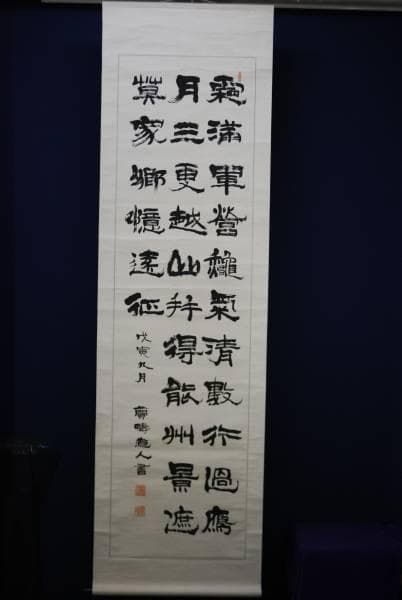 霜滿軍營龝氣清數行過鴈
月三更越山并得能州景遮
莫家鄉憶遠征
戊寅九月
人書